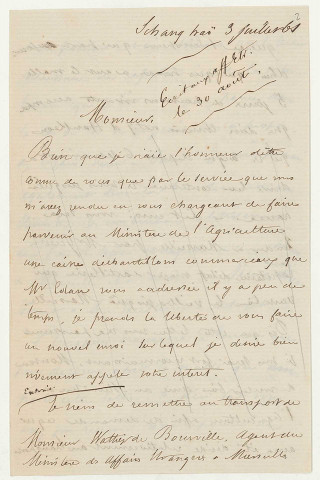 Schang haï 3 juillet 61
2
Ecrit aux aff. Etr.
le 30 août.
Monsieur,
Bien que je n'aie l'honneur d'être
connu de vous que par le service que vous
m'avez rendu en vous chargeant de faire
parvenir au Ministère de l'Agriculture
une caisse d'échantillons commerciaux que
Mr Edan vous a adressée il y a peu de
temps, je prends la liberté de vous faire
un nouvel envoi sur lequel je désire bien
vivement appeler votre intérêt.
Extrait
Je viens de remettre au transport de
Monsieur Wattier de Bourville, Agent du
Ministère des Affaires Etrangères à Marseille